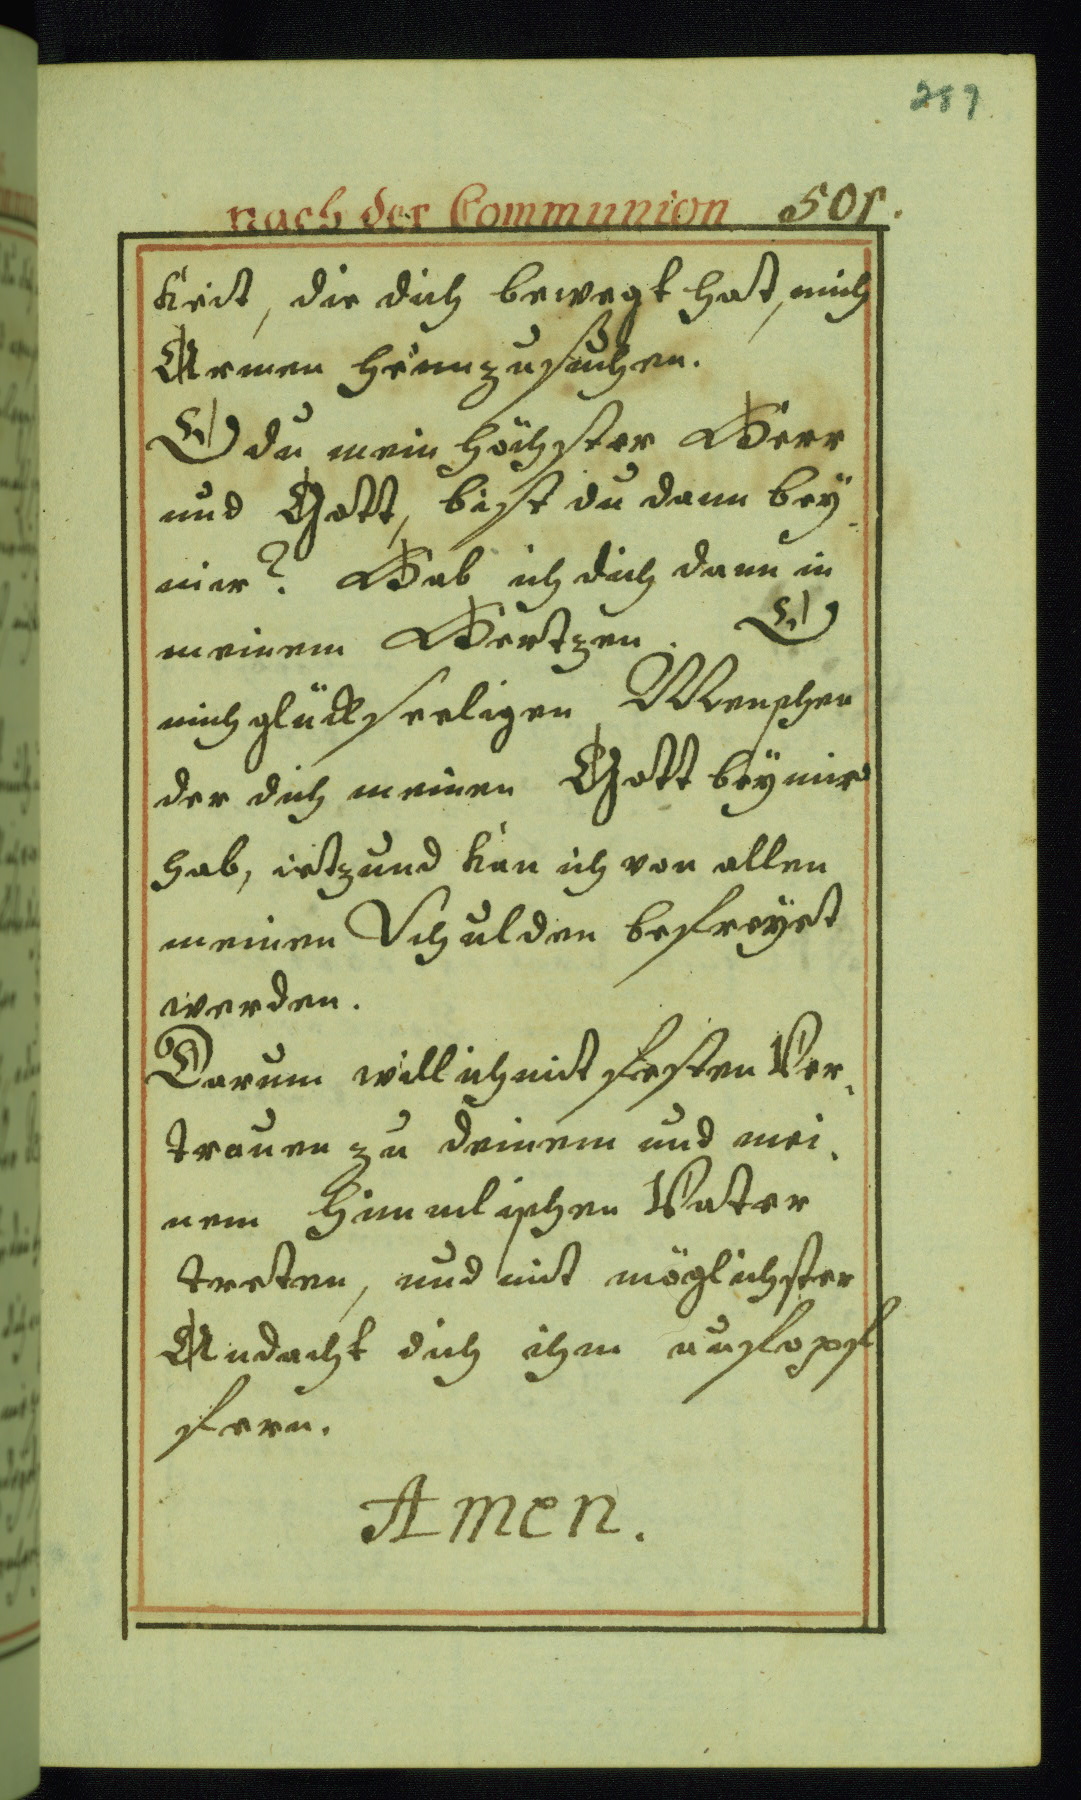 259
nach der Communion 501.
keit, die dich bewegt hat, mich
Armen heimzusuchen.
O du mein höchster Herr
und Gott, bist du dann bey
mir? Hab ich dich dann in
meinem Hertzen. O
mich glückseeligen Menschen
der dich meinen Gott bey mir
hab, ietzund kan ich von allen
meinen Schulden befreyet
werden.
Darum will ich mit festen Ver-
trauen zu deinem und mei-
nem himmlischen Vater
tretten, und mit möglichster
Andacht dich ihm aufopf
fern.
Amen.